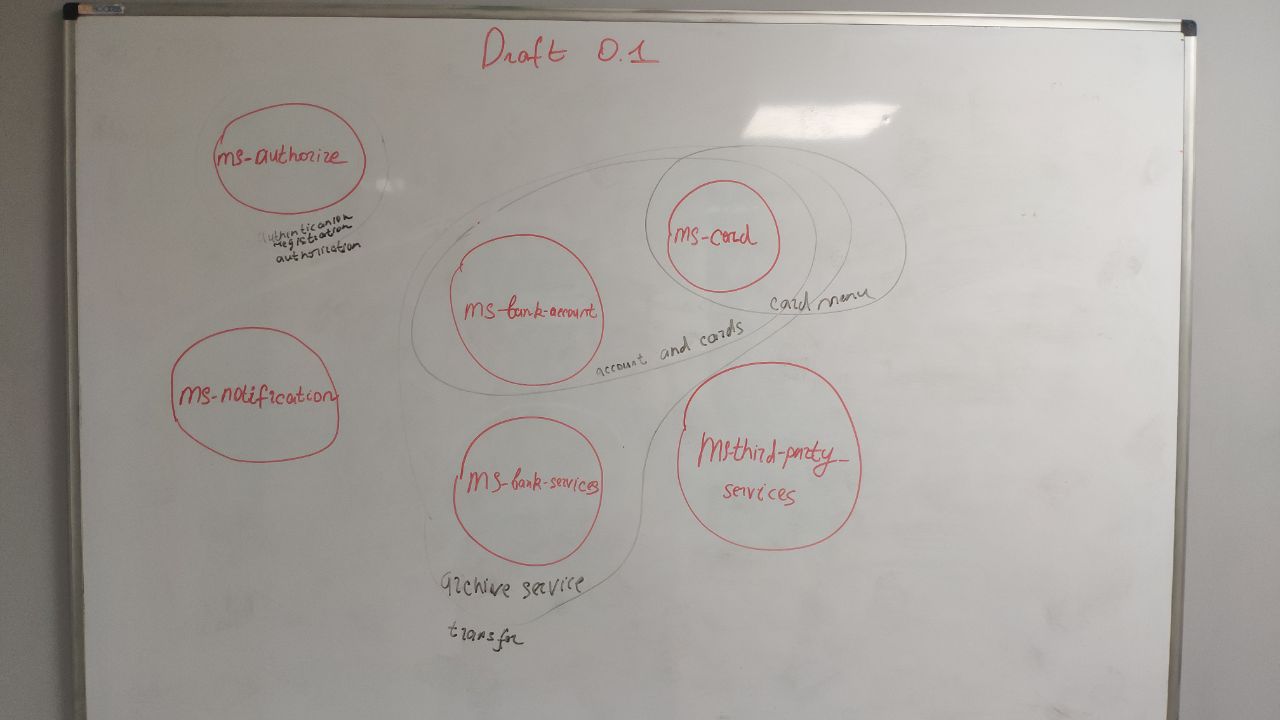 Draft 0.1
ms-authorize
authentication
registration
authorization
ms-card
card menu
ms-bank-account
account and cards
ms-notification
ms-bank-services
ms-third-party-
services
archive service
transfer